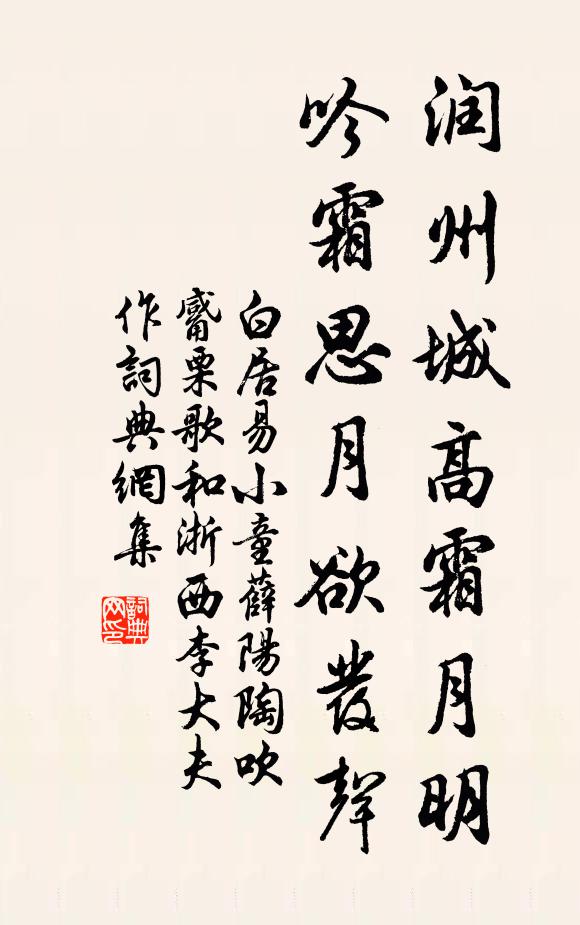 润州城高霜月明
吟霜思月欲發聲
白居易小童薛陽陶吹
觱栗歌和浙西李大夫
作詞典網集
詞典网印